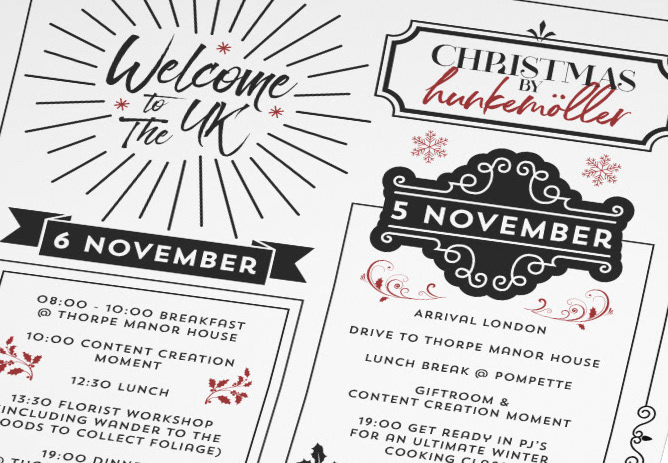 Welcome
to
The UK
6 NOVEMBER
08:00 - 10:00 BREAKFAST
@ THORPE MANOR HOUSE
10:00 CONTENT CREATION
MOMENT
12:30 LUNCH
13:30 FLORIST WORKSHOP
(INCLUDING WANDER TO THE
OODS TO COLLECT FOLIAGE)
19:00 DINN
CHRISTMAS
BY
hunkemöller
5 NOVEMBER
ARRIVAL LONDON
DRIVE TO THORPE MANOR HOUSE
LUNCH BREAK @ POMPETTE
GIFTROOM &
CONTENT CREATION MOMENT
19:00 GET READY IN PJ'S
FOR AN ULTIMATE WINTER
COOKING